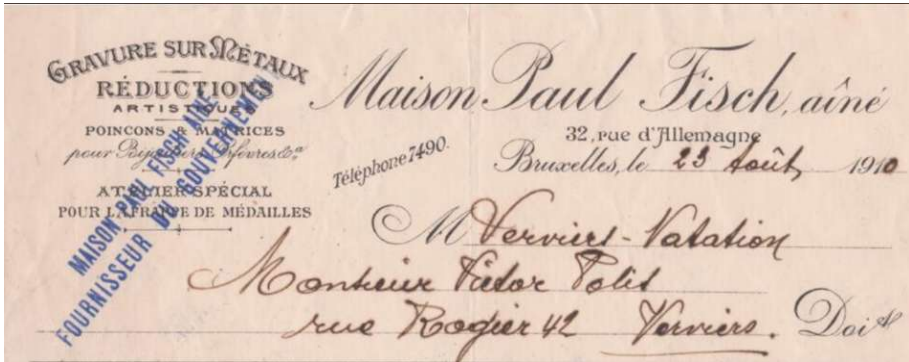 GRAVURE SUR MÉTAUX
RÉDUCTIONS
ARTISTIQUES
POINÇONS & MATRICES
pour Bijoutiers, Orfèvres &a.
ATELIER SPÉCIAL
POUR LA FRAPPE DE MÉDAILLES
MAISON PAUL FISCH AINÉ
FOURNISSEUR DU GOUVERNEMENT
Maison Paul Fisch, aîné
32, rue d'Allemagne
Téléphone 7490.
Bruxelles, le 23 Août 1910
M Verviers-Natation
Monsieur Victor
rue Rogier 42 Verviers. Doit